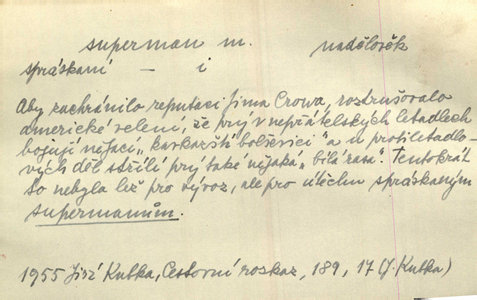 superman m. nadčlověk
spráskaní — i
Aby zachránilo reputaci Jima Crowa, roztrušovalo
americké velení, že prý v nepřátelských letadlech
bojují nějací „kavkazští bolševici" a u protiletadlo-
vých děl střílí prý také nějaká „bílá rasa". Tentokrát
to nebyla lež pro vývoz, ale pro útěchu spráskaným
supermanům.
1955 Jiří Kubka, Cestovní rozkaz, 189, 17 (J. Kubka)